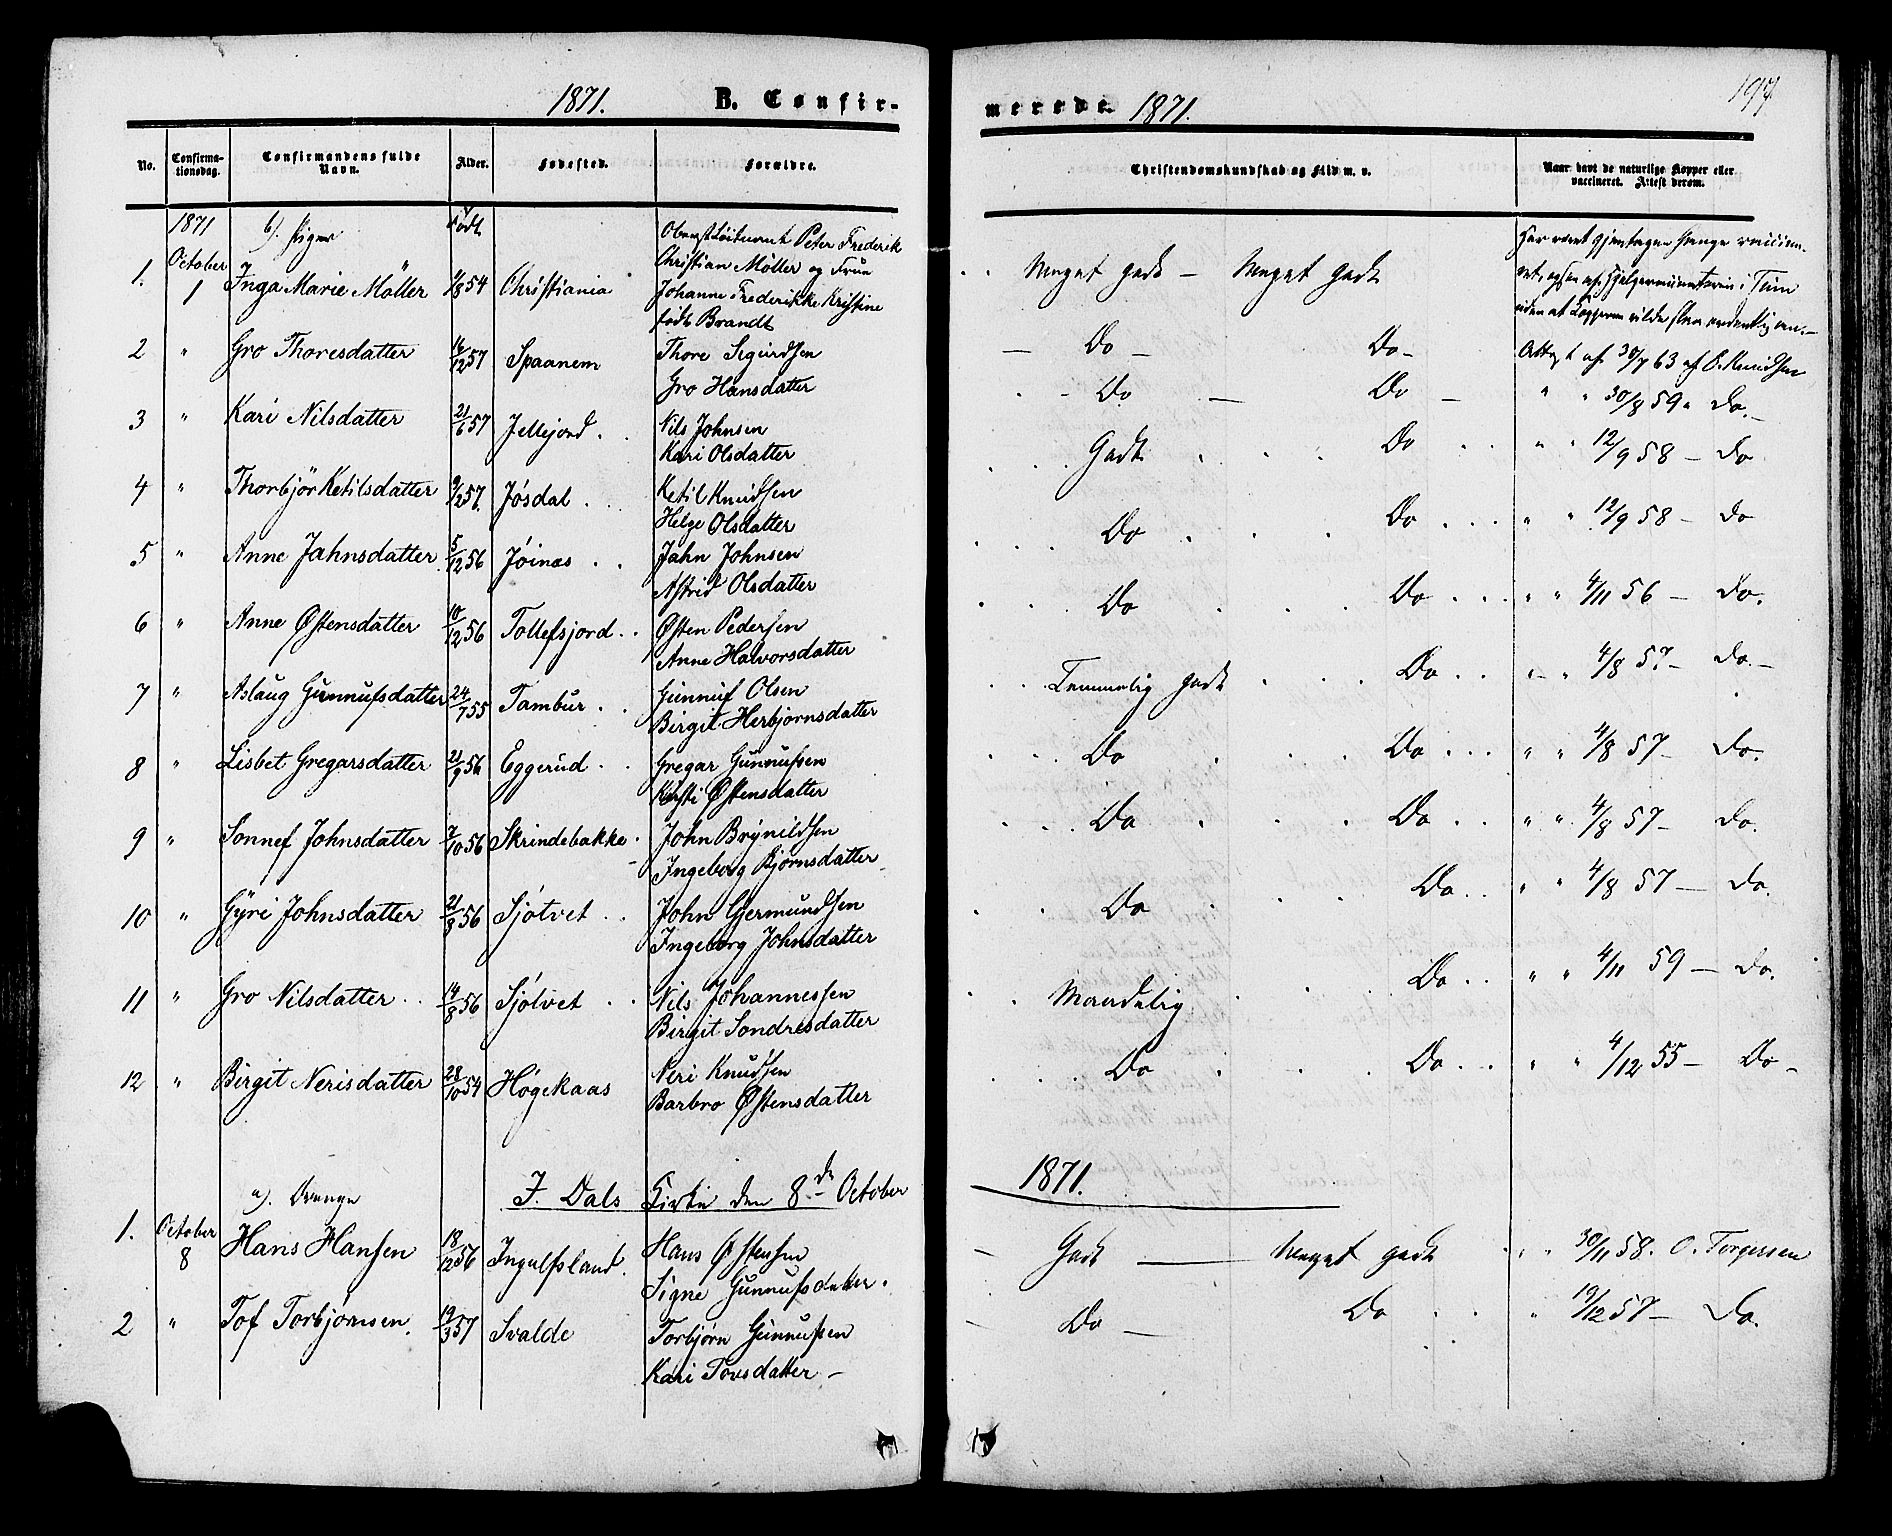 1871. B. Confir-
No. Confirma-tionsdag. Confirmandens fulde Navn. Alder. Fødested. Forældre.
1871 b). Piger Født Oberstløitnant Peter Frederik
October Christian Møller og Frue
1. 1 Inga Marie Møller 1/8 54 Christiania Johanne Frederikke Kristine
født Brandt
2 " Gro Thoresdatter 16/12 57 Spaanem Thore Sigurdsen
Gro Hansdatter
3 " Kari Nilsdatter 21/6 57 Jellejord . . Nils Johnsen
Kari Olsdatter
4 " Thorbjør Ketilsdatter 9/2 57. Jøsdal . . Ketil Knudsen
Helge Olsdatter
5 " Anne Jahnsdatter 5/12 56 Jøinæs . . Jahn Johnsen
Astrid Olsdatter
6 " Anne Østensdatter 10/12 56 Tollefsjord . . Østen Pedersen
Anne Halvorsdatter
7 " Aslaug Gunnufsdatter 24/7 55 Tambur . . Gunnuf Olsen
Birgit Herbjørnsdatter
8 " Lisbet Gregarsdatter 21/9 56 Eggerud . . Gregar Gunnufsen
Kirsti Østensdatter
9 " Sønnef Johnsdatter 7/10 56 Skrindebakke . John Brynildsen
Ingeborg Bjørnsdatter
10 " Gyri Johnsdatter 21/8 56 Sjøtvet . . John Germundsen
Ingeborg Johnsdatter
11 " Gro Nilsdatter . . 14/8 56 Sjøtvet . . Nils Johannessen
Birgit Sondresdatter
12 " Birgit Nerisdatter 28/10 54 Høgekaas Neri Knudsen
Barbro Østensdatter
a). Drenge I. Dals Kirke den 8de October
1. October 8 Hans Hansen 18/12 56 Ingulfsland. Hans Østensen
Signe Gunnufsdatter.
2 " Tof Torbjørnsen 19/3 57 Svalde Torbjørn Gunnufsen
Kari Tovsdatter –
merede. 1871. 197
Christendomskundskab og Flid m. v. Naar havt de naturlige Kopper eller vaccineret. Attest derom.
Har været gjentagne Gange vaccine-
. . Meget godt – Meget godt ret, ogsaa af Hjelpevaccinatøren i Tinn
uden at Kopperne vilde slaa ordentlig an. –
– Do – Do – Attest af 30/7 63 af O. Knudsen
. - Do – Do – " " 30/8 59 " Do. –
. . . Godt . . . Do . . " " 12/9 58 – Do
. . . Do . . . Do . . . " " 12/9 58 – Do
. . . Do . . . Do . . . " " 4/11 56 – Do.
. . Temmelig godt . . . Do . . " " 4/8 57 – Do. –
. . . Do . . . Do . . . " " 4/8 57 – Do.
. . . Do . . . Do . . " " 4/8 57 – Do.
. . Do . . . Do . . " " 4/8 57 – Do.
. . Maadelig . . . Do . . " " 4/11 59 – Do.
. . . Do . . . Do . . . " " 4/12 55 – Do –
1871.
– Godt – Meget godt . " " 30/11 58. O. Torgersen
– Do – Do . . " 19/12 57 – Do.